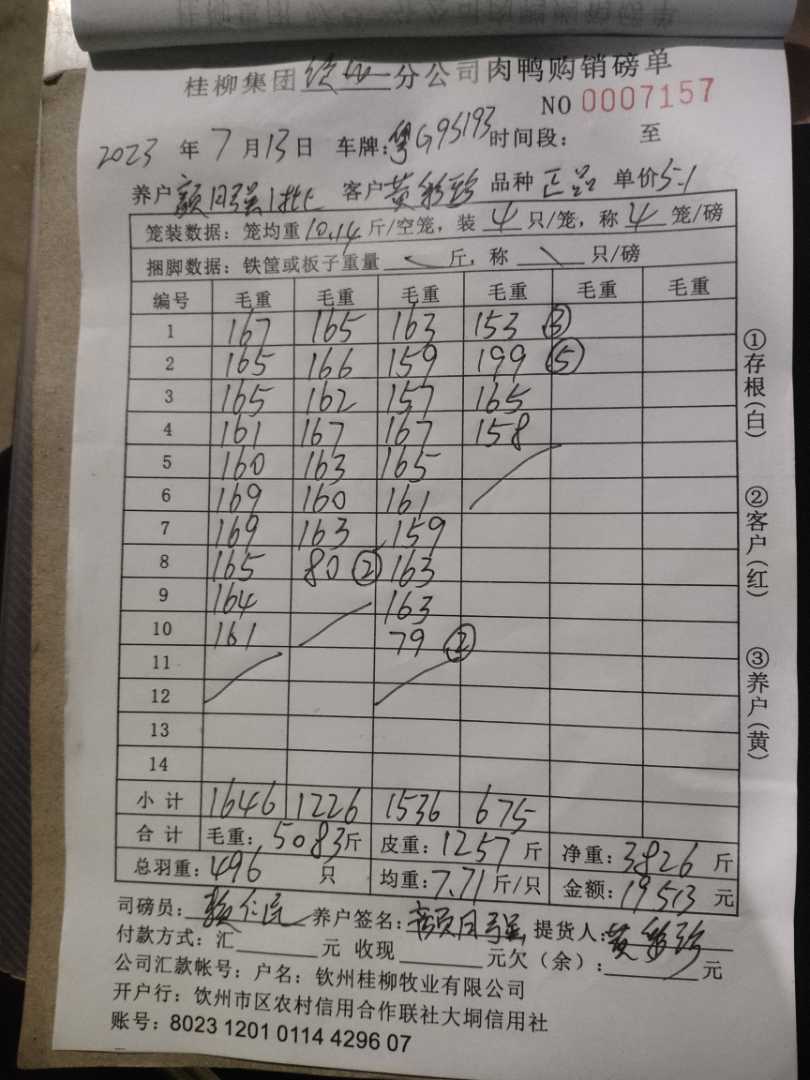 桂柳集团 钦州 分公司肉鸭购销磅单
NO 0007157
2023 年 7 月 13 日 车牌: 粤G95193 时间段: 至
养户 颜日强1批 客户 黄彩珍 品种 正品 单价 5.1
笼装数据: 笼均重 10.14 斤/空笼, 装 4 只/笼, 称 4 笼/磅
捆脚数据: 铁筐或板子重量 斤, 称 只/磅
编号 毛重 毛重 毛重 毛重 毛重 毛重
1 167 165 163 153 ③
2 165 166 159 199 ⑤
3 165 162 157 165
4 161 167 167 158
5 160 163 165
6 169 160 161
7 169 163 159
8 165 80 ② 163
9 164 163
10 161 79 ②
11
12
13
14
小计 1646 1226 1536 675
合计 毛重: 5083 斤 皮重: 1257 斤 净重: 3826 斤
总羽重: 496 只 均重: 7.71 斤/只 金额: 19513 元
司磅员: 养户签名: 颜日强 提货人: 黄彩珍
付款方式: 汇 元 收现 元欠(余): 元
公司汇款帐号: 户名: 钦州桂柳牧业有限公司
开户行: 饮州市区农村信用合作联社大垌信用社
账号: 8023 1201 0114 4296 07
①存根(白)
②客户(红)
③养户(黄)